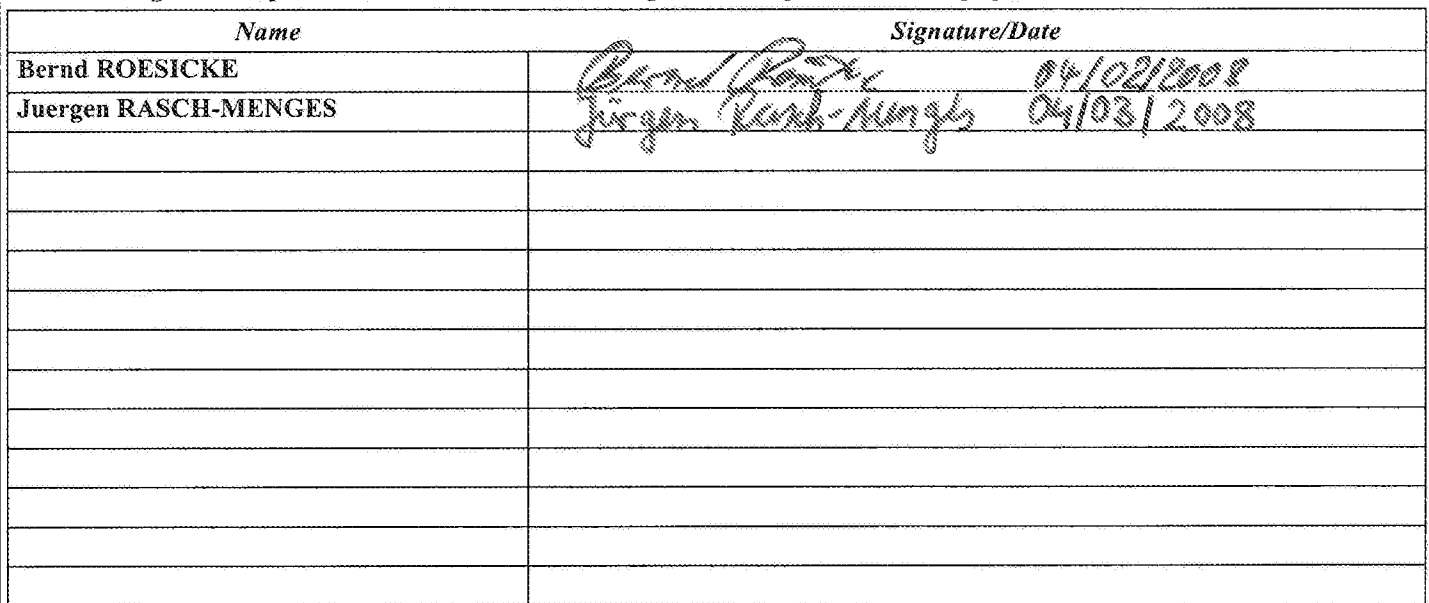 Name Signature/Date
Bernd ROESICKE Bernd 04/02/2008
Juergen RASCH-MENGES Jürgen Rasch-Menges 04/03/2008